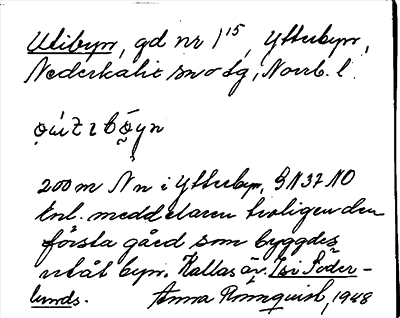 Utibyn, gd nr 1¹⁵, Ytterbyn,
Nederkalix sn o tg, Norrb. l.
200 m N n i Ytterbyn, GN 37 NO
Enl. meddelaren troligen den
första gård som byggdes
utåt byn. Kallas äv. Isi Söder-
lunds. Anna Rönnquist, 1948